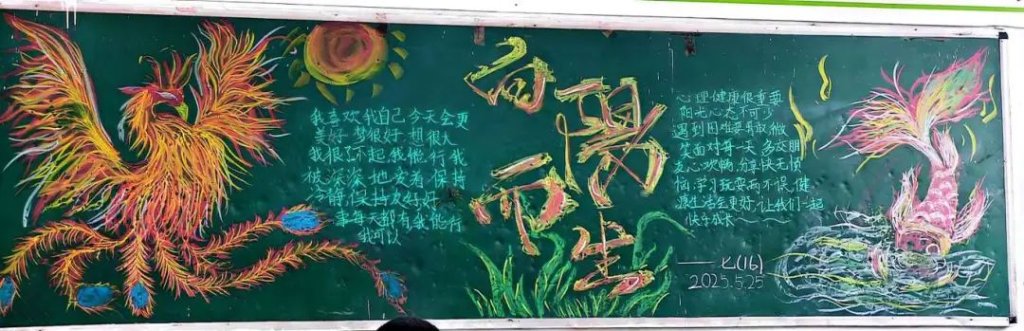 我喜欢我自己今天会更
美好 梦很好 想很人
我很了不起,我能行我
被深深地爱着,保持
冷静,保持友好,好
事每天都有,我能行
我可以
向
阳
而
生
心理健康很重要
阳光心态不可少
遇到困难要勇敢,微
笑面对每一天 多交朋
友心欢畅,分享快无烦
恼,学习玩耍两不误,健
康生活至更好,让我们一起
快乐成长
——七(16)
2025.5.25